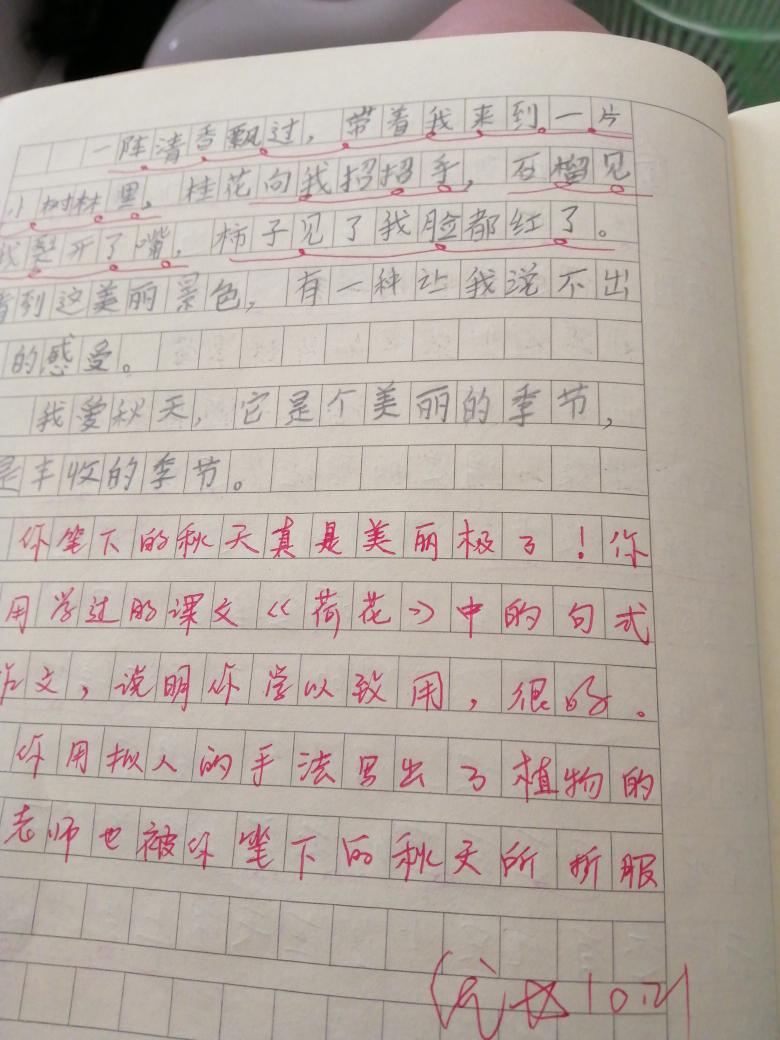 一阵清香飘过，带着我来到一片
小树林里，桂花向我招招手，石榴见
我裂开了嘴，柿子见了我脸都红了。
看到这美丽景色，有一种让我说不出
的感受。
我爱秋天，它是个美丽的季节，
是丰收的季节。
你笔下的秋天真是美丽极了！你
用学过的课文《荷花》中的句式
作文，说明你学以致用，很好。
你用拟人的手法写出了植物的
老师也被你笔下的秋天所折服
优 10.21